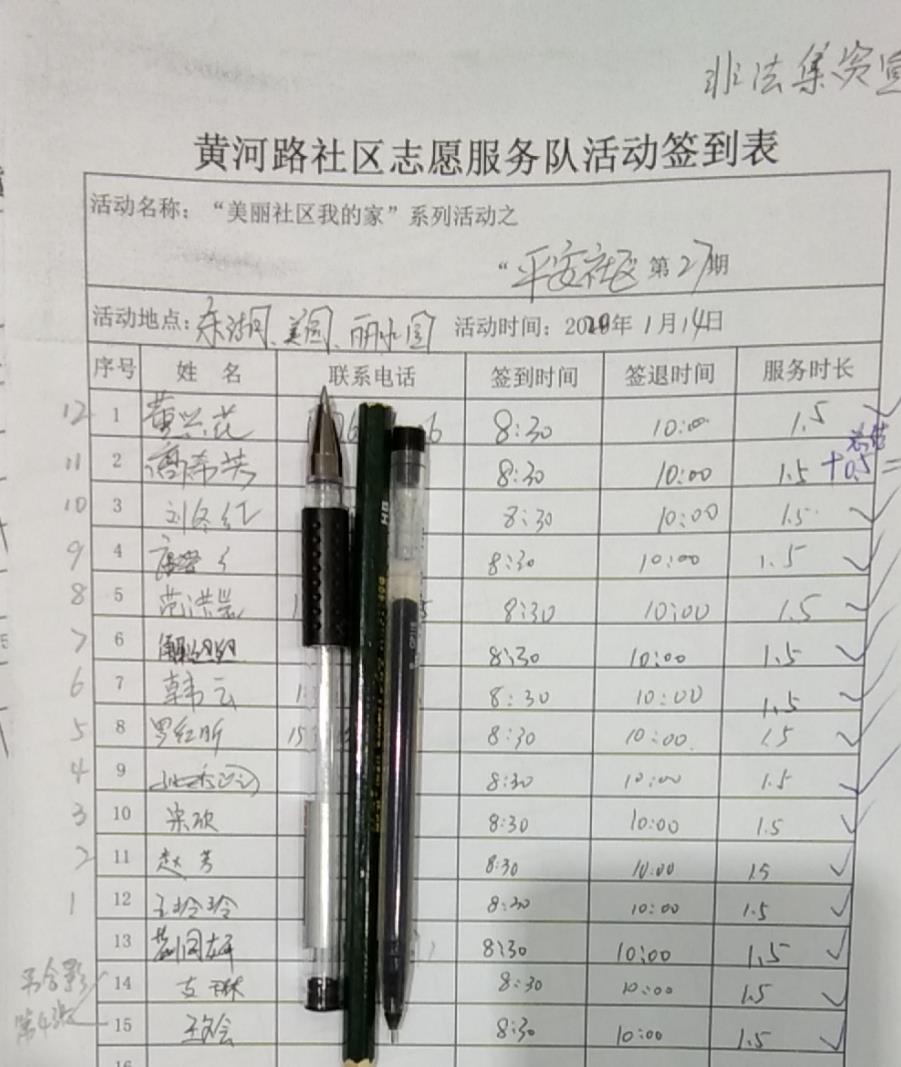 非法集资宣
黄河路社区志愿服务队活动签到表
活动名称：“美丽社区我的家”系列活动之
“平安社区 第27期
活动地点： 美园、丽水园 活动时间：2020年1月14日
序号 姓 名 联系电话 签到时间 签退时间 服务时长
12 1 黄兴花 6 8:30 10:00 1.5
总结
11 2 高希英 8:30 10:00 1.5 +0.5 =
10 3 刘冬红 8:30 10:00 1.5
9 4 8:30 10:00 1.5
8 5 范洪岩 8:30 10:00 1.5
7 6 8:30 10:00 1.5
6 7 韩云 8:30 10:00 1.5
5 8 罗红昕 15 8:30 10:00 1.5
4 9 8:30 10:00 1.5
3 10 宋欣 8:30 10:00 1.5
2 11 赵芳 8:30 10:00 1.5
1 12 王玲玲 8:30 10:00 1.5
13 8:30 10:00 1.5
14 支琳 8:30 10:00 1.5
15 8:30 10:00 1.5
16
HB